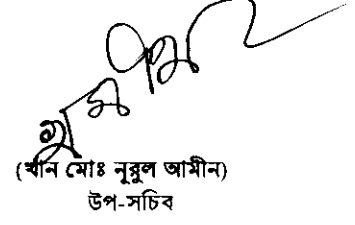 (খান মোঃ নূরুল আমীন)
উপ-সচিব